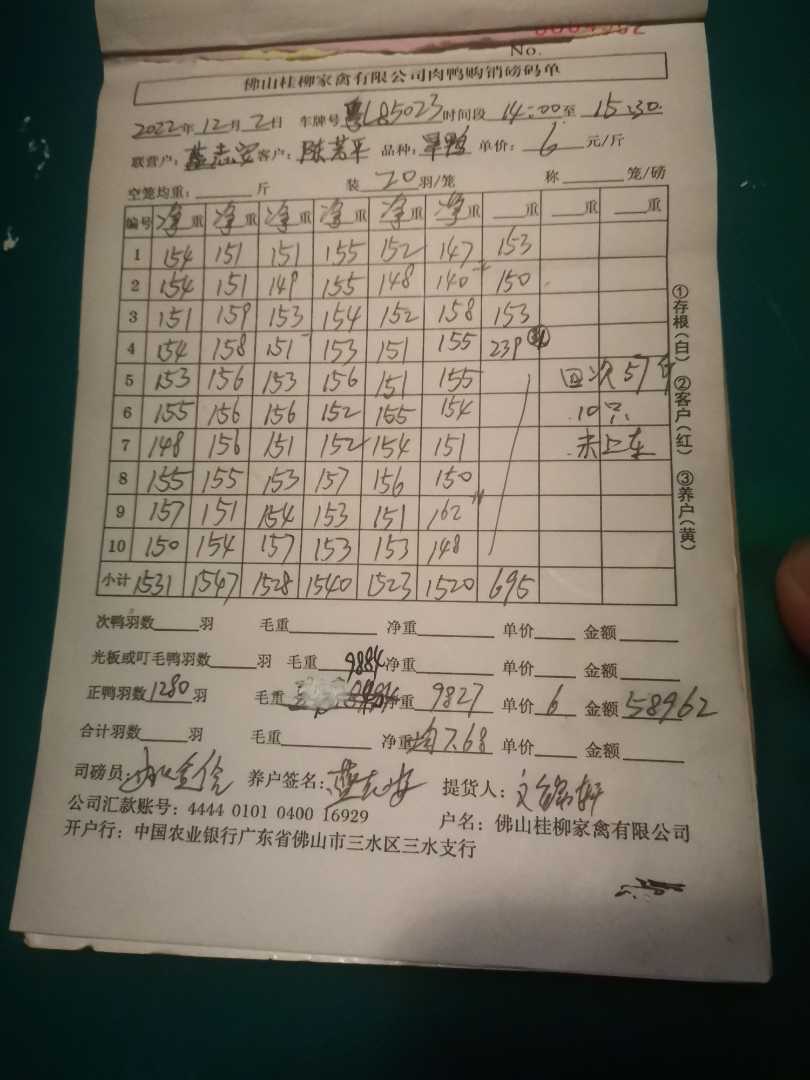 No.
佛山桂柳家禽有限公司肉鸭购销磅码单
2022年12月2日 车牌号 粤L85023 时间段 14:00至 15:30
联营户: 蓝志安 客户: 陈芳平 品种: 旱鸭 单价: 6 元/斤
空笼均重: 斤 装 20 羽/笼 称 笼/磅
编号 净重 净重 净重 净重 净重 净重 重 重 重
1 154 151 151 155 152 147 153
2 154 151 149 155 148 140 150
3 151 159 153 154 152 158 153
4 154 158 151 153 151 155 239
5 153 156 153 156 151 155 回次57斤
6 155 156 156 152 155 154 10只
7 148 156 151 152 154 151 未上车
8 155 155 153 157 156 150
9 157 151 154 153 151 162
10 150 154 157 153 153 148
小计 1531 1547 1528 1540 1523 1520 695
①存根(白) ②客户(红) ③养户(黄)
次鸭羽数 羽 毛重 净重 单价 金额
光板或叮毛鸭羽数 羽 毛重 9884 净重 单价 金额
正鸭羽数 1280 羽 毛重 净重 9827 单价 6 金额 58962
合计羽数 羽 毛重 净重 均7.68 单价 金额
司磅员: 养户签名: 提货人:
公司汇款账号: 4444 0101 0400 16929 户名: 佛山桂柳家禽有限公司
开户行: 中国农业银行广东省佛山市三水区三水支行